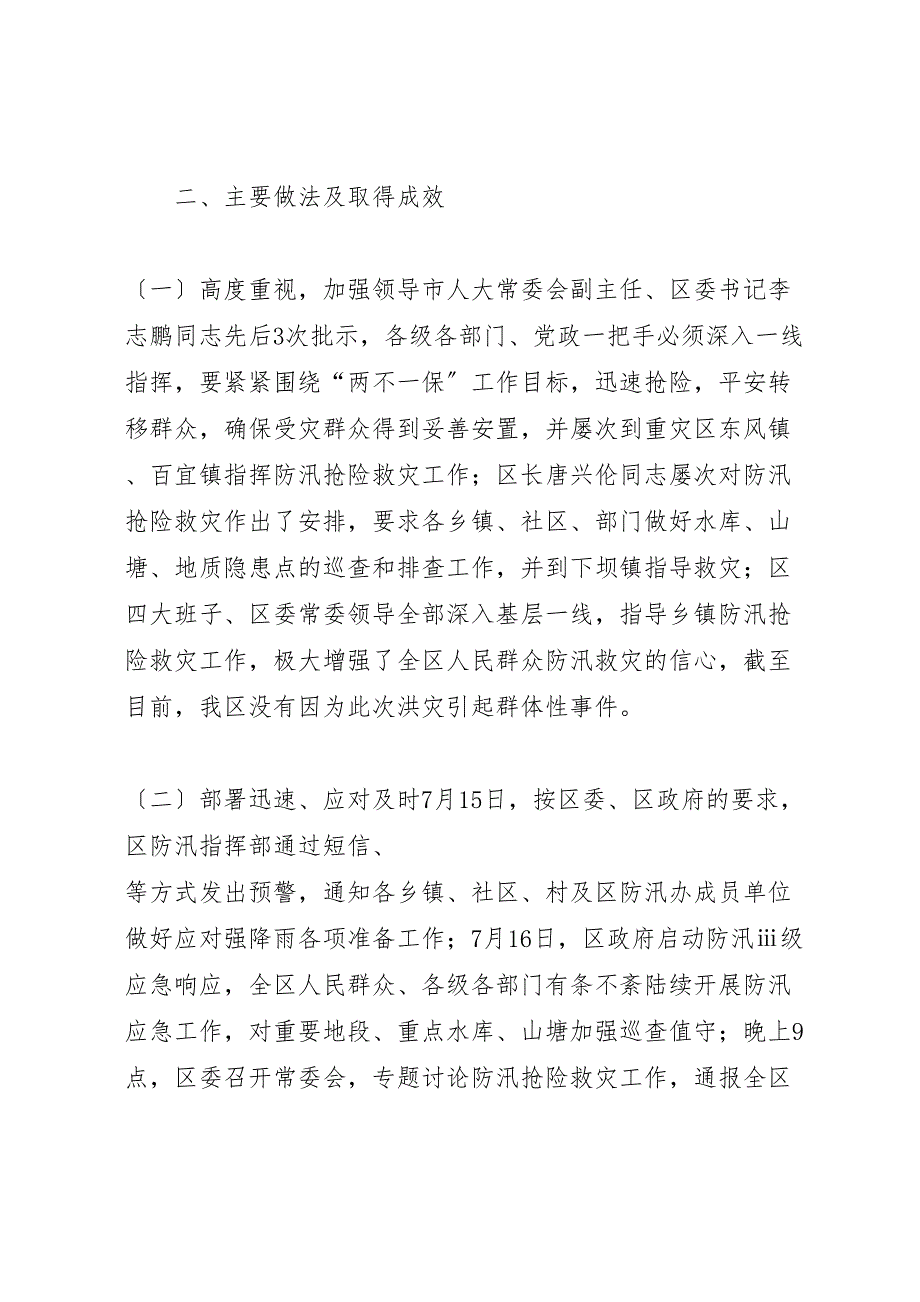 二、主要做法及取得成效
〔一〕高度重视，加强领导市人大常委会副主任、区委书记李
志鹏同志先后3次批示，各级各部门、党政一把手必须深入一线
指挥，要紧紧围绕“两不一保〞工作目标，迅速抢险，平安转
移群众，确保受灾群众得到妥善安置，并屡次到重灾区东风镇
、百宜镇指挥防汛抢险救灾工作；区长唐兴伦同志屡次对防汛
抢险救灾作出了安排，要求各乡镇、社区、部门做好水库、山
塘、地质隐患点的巡查和排查工作，并到下坝镇指导救灾；区
四大班子、区委常委领导全部深入基层一线，指导乡镇防汛抢
险救灾工作，极大增强了全区人民群众防汛救灾的信心，截至
目前，我区没有因为此次洪灾引起群体性事件。
〔二〕部署迅速、应对及时7月15日，按区委、区政府的要求，
区防汛指挥部通过短信、
等方式发出预警，通知各乡镇、社区、村及区防汛办成员单位
做好应对强降雨各项准备工作；7月16日，区政府启动防汛ⅲ级
应急响应，全区人民群众、各级各部门有条不紊陆续开展防汛
应急工作，对重要地段、重点水库、山塘加强巡查值守；晚上9
点，区委召开常委会，专题讨论防汛抢险救灾工作，通报全区